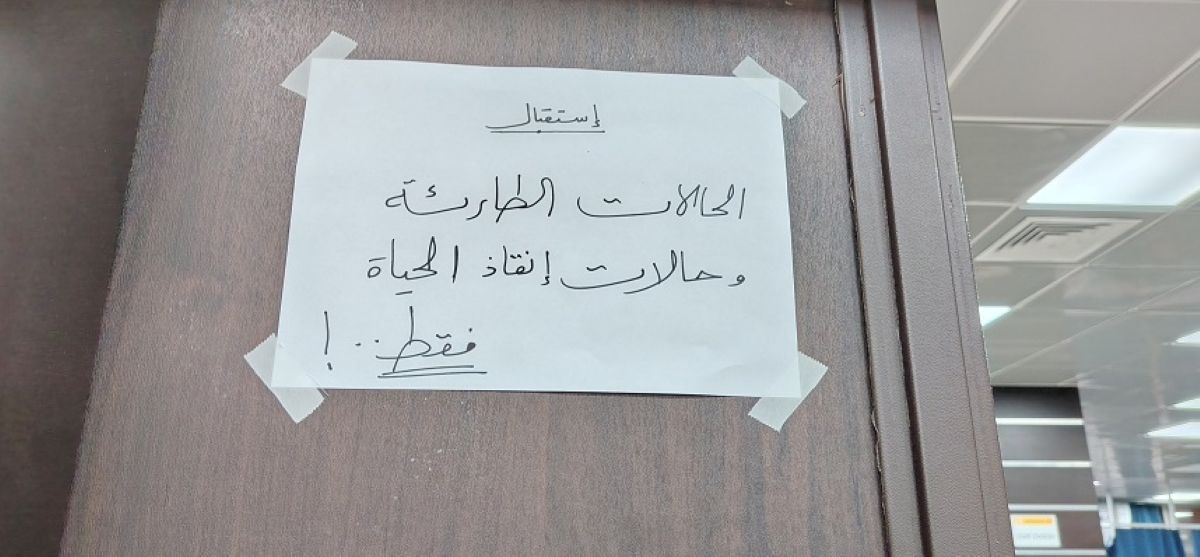 إستقبال
الحالات الطارئة
وحالات إنقاذ الحياة
فقط..!